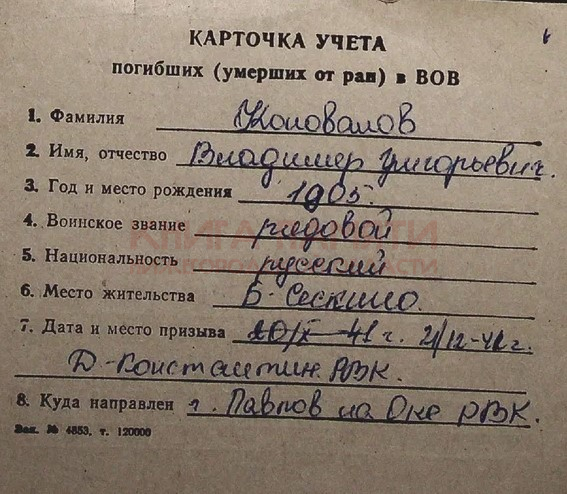 КАРТОЧКА УЧЕТА
погибших (умерших от ран) в ВОВ
1. Фамилия Коновалов
2. Имя, отчество Владимер Григорьевич.
3. Год и место рождения 1905.
4. Воинское звание рядовой
5. Национальность русский
6. Место жительства Б-Сескино.
7. Дата и место призыва 20/X-41 г. 21/12-41 г.
Д-Константин. РВК.
8. Куда направлен г. Павлов на Оке РВК.
Зак. № 4853, т. 120000
КНИГА ПАМЯТИ